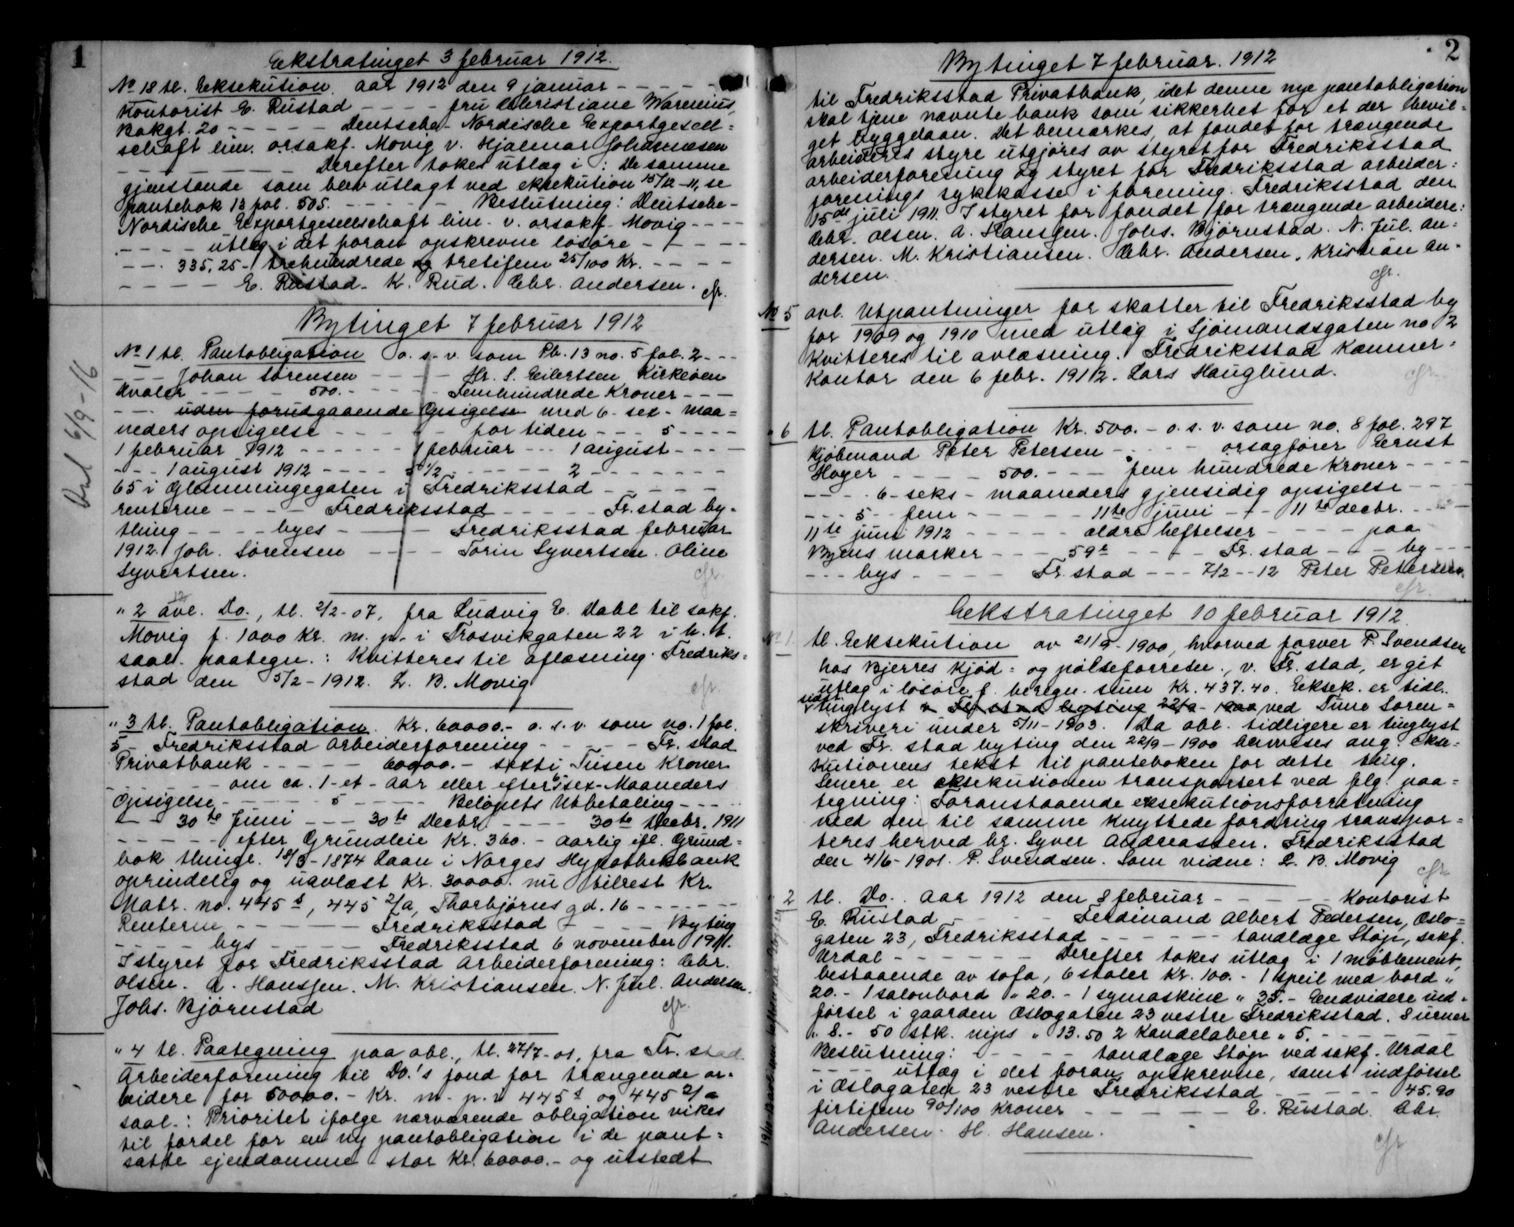 1
Ekstratinget 3 februar 1912.
No 18 tl. Eksekution aar 1912 den 9 januar - - - - -
Kontorist E. Rustad - - - - fru Christiane Warenius,
Bakgt. 20 - - - - - Deutsche-Nordische Exportgesell=
schaft lim. orsakf. Movig v. Hjalmar Johannesen
- - - - - - - Derefter tokes utlæg i: De samme
gjenstande som blev utlagt ved eksekution 15/12-11, se
pantebok 13 fol. 505. - - - - Beslutning: Deutsche-
Nordische Exportgesellschaft lim. v. orsakf. Movig - - -
- - - - utlæg i det foran opskrevne løsøre - - - -
- - - 335,25 - trehundrede og tretifem 25/100 Kr. - - - -
- - - - - E. Rustad. K. Rud. Chr. Andersen.
Bytinget 7 februar 1912
No 1 tl. Pantobligation o. s. v. som Pb. 13 no. 5 fol. 2 - - -
- - - Johan Sørensen - - - - Hr. S. Eilertsen Kirkeøen
Hvaler - - - - 500.- - - - Femhundrede Kroner - - -
- - - uden forudgaaende Opsigelse med 6 - sex - maa=
neders opsigelse - - - - for tiden - - - 5 - - - -
1 februar 1912 - - - - 1 februar - - - 1 august - - -
- - - 1 august 1912 - - - - 5 1/2 - - - - 2 - - - - -
65 i Glemmingegaten i Fredriksstad - - - - -
renterne - - - - Fredriksstad - - - - Fr. stad by-
thing - - - byes - - - - Fredriksstad februar
1912 Joh. Sørensen - - - - Torin Syvertsen. Oline
Syvertsen.
Del 6/9-16
" 2 avl. Do., tl. 2/2-07, fra Ludvig E. Dahl til sakf.
Movig f. 1000 Kr. m. p. i Trosvikgaten 22
saal. paategn.: Kvitteres til aflæsning. Fredriks=
stad den 5/2-1912. L. B. Movig
" 3 tl. Pantobligation Kr. 60000.- o. s. v. som no. 1 fol.
5 Fredriksstad Arbeiderforening - - - - - Fr. stad
Privatbank - - - - - 60000.- sexti Tusen Kroner
- - - - - - om ca. 1-et-aar eller efter 6-sex-Maaneders
Opsigelse - - - - - 5 - - - - - Beløpets Utbetaling - - - -
- - 30te Juni - - - 30te Decbr. - - - - 30te Decbr. 1911
- - - - - efter Grundleie Kr. 360.- aarlig ifl. Grund=
bok thingl. 18/3-1874 Laan i Norges Hypothekbank
oprindelig og uavlæst Kr. 30000. nu tilrest Kr.
Matr. no. 445 , 445 2/a, Thorbjørns gd. 16 - - - - - -
Renterne - - - - - - Fredriksstad - - - - Byting
- - - - bys - - - - - Fredriksstad 6 november 1911.
I styret for Fredriksstad Arbeiderforening: Chr.
Olsen. A. Hansen. M. Kristiansen. N. Jul. Andersen.
Johs. Bjørnstad
" 4 tl. Paategning paa obl., tl. 27/7-01, fra Fr. stad
Arbeiderforening til Do.'s fond for trængende ar-
beidere for 50000.- Kr. m. p. i 445 og 445 2/a
saal.: Prioritet ifølge nærværende obligation vikes
til fordel for en ny pantobligation i de pant=
satte ejendomme stor Kr. 60000.- og utstedt
2
Bytinget 7 februar. 1912
til Fredriksstad Privatbank, idet denne nye pantobligation
skal tjene nævnte bank som sikkerhet for et der bevil=
get byggelaan. Det bemærkes, at fondet for trængende
arbeideres styre utgjøres av styret for Fredriksstad
arbeiderforening og styret for Fredriksstad arbeider=
forenings sykekasse i forening. Fredriksstad den
15de juli 1911. I styret for fondet for trængende arbeidere:
Chr. Olsen. A. Hansen. Johs. Bjørnstad. N. Jul. An=
dersen. M. Kristiansen. Chr. Andersen. Kristian An-
dersen.
No 5 avl. Utpantninger for skatter til Fredriksstad by
for 1909 og 1910 med utlæg i Sjømandsgaten no 2
Kvitteres til avlæsning. Fredriksstad Kæmner=
Kontor den 6 febr. 1912. Lars Hauglund.
" 6 tl. Pantobligation Kr. 500.- o. s. v. som no. 8 fol. 297
Kjøbmand Peter Petersen - - - - - orsagfører Ernst
Høyer - - - - - 500.- - - - fem hundrede Kroner - - - -
- - - - 6 - seks - maaneders gjensidig opsigelse - - - -
- - - 5 - fem - - - - - 11te juni - - - 11te decbr. - - -
11te juni 1912 - - - - - ældre heftelser - - - - paa
Byens marker - - - 59 - - - - Fr. stad - - - by - - -
- - - bys - - - - - Fr. stad - - - 7/2 - - 12 Peter Petersen.
Ekstratinget 10 februar 1912.
No 1. tl. Eksekution av 21/9-1900, hvorved farver P. Svendsen
hos Bjerres Kjød- og pølseforretn., v. Fr. stad, er git
utlæg i løsøre f. beregn. sum Kr. 437.40. Eksek. er tidl.
tinglyst v. Fr. stad byting 22/9-1900 ved Tune Soren=
skriveri under 5/11-1903. Da obl. tidligere er tinglyst
ved Fr. stad byting den 22/9-1900 henvises ang. ekse=
kutionens tekst til panteboken for dette ting.
Senere er eksekutionen transportert ved flg. paa=
tegning: Foranstaaende eksekutionsforretning
med den til samme knyttede fordring transpor=
teres herved hr. Syver Andreassen. Fredriksstad
den 4/6-1901. P. Svendsen. Som vidne: L. B. Movig
2 tl. Do. Aar 1912 den 8 februar - - - - - Kontorist
E. Rustad - - - - Ferdinand Albert Pedersen, Oslo-
gaten 23, Fredriksstad - - - - - - tandlæge Støp, sakf.
Urdal - - - - - - - Derefter tokes utlæg i 1 møblement,
bestaaende av sofa, 6 stoler Kr. 100.- 1 speil med bord "
20.- 1 salonbord " 20.- 1 symaskine " 35.- Endvidere ind=
førsel i gaarden Oslogaten 23 vestre Fredriksstad. 8 urner
" 8.- 50 stk. nips " 13.50 2 Kandelabere " 5. - - - - - -
Beslutning: - - - - - tandlæge Støp ved sakf. Urdal
- - - - utlæg i det foran opskrevne, samt indførsel
i Oslogaten 23 vestre Fredriksstad - - - - - 45.90
firtifem 90/100 Kroner - - - - - - - E. Rustad. Chr.
Andersen. H. Hansen.